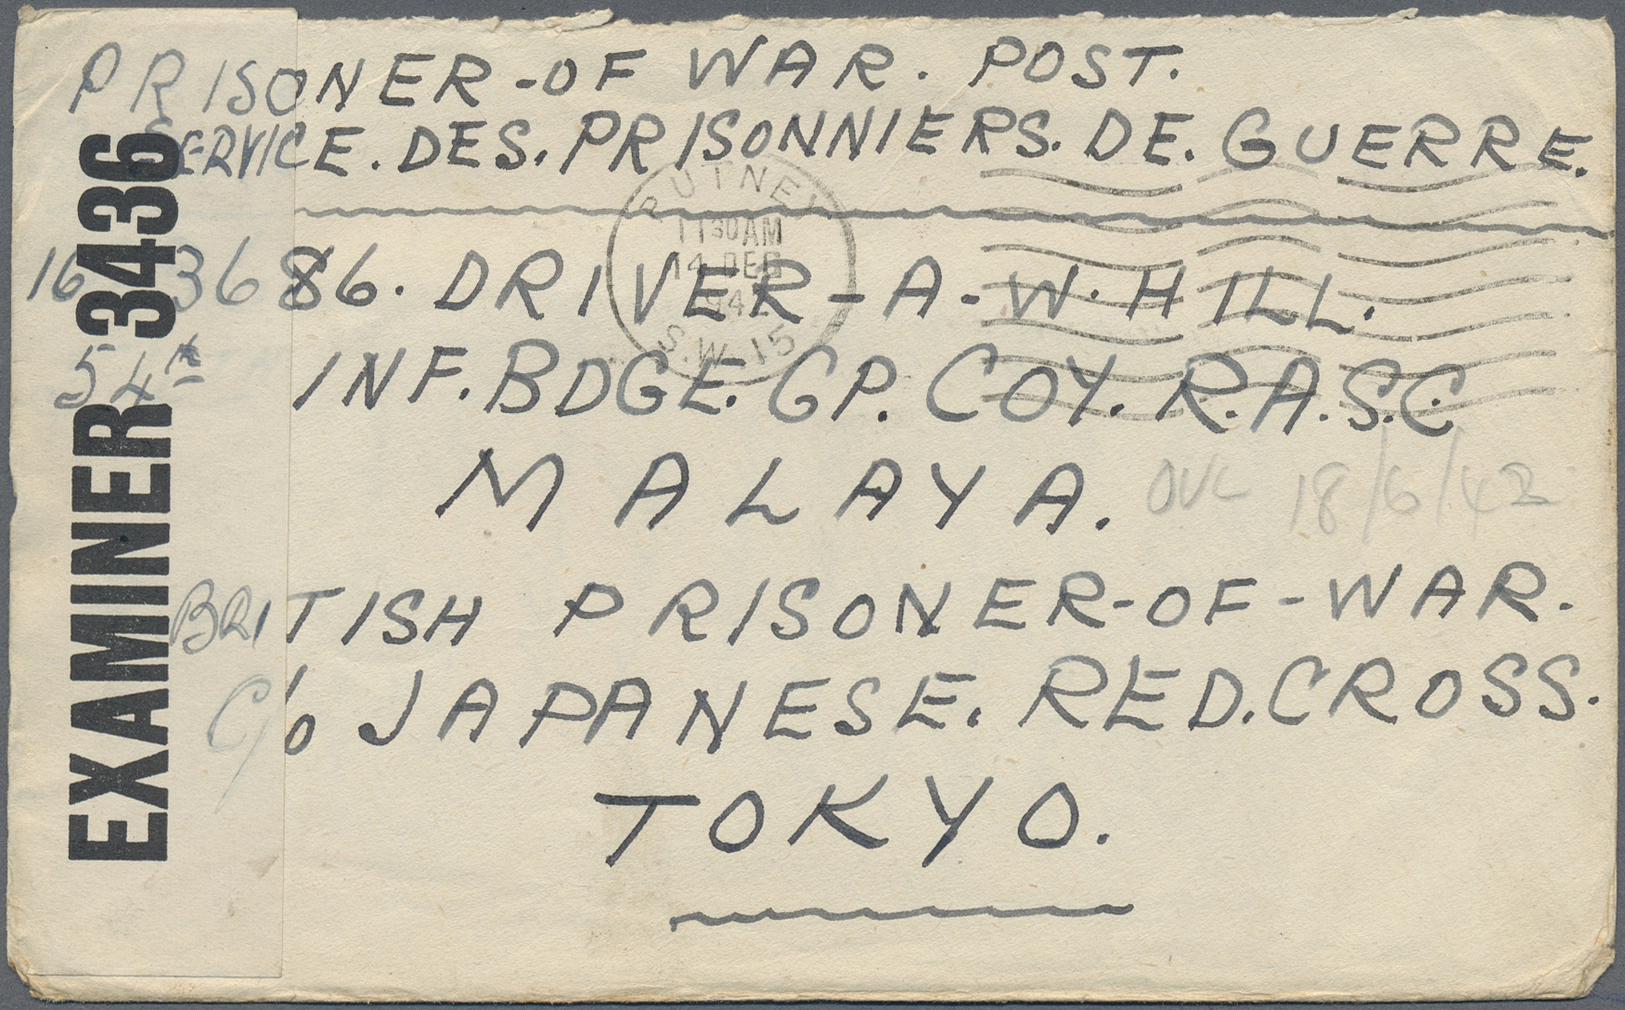 PRISONER-OF WAR. POST.
SERVICE. DES. PRISONNIERS. DE. GUERRE.
PUTNEY
1130AM
14 DEC
194
S.W.15
86. DRIVER-A-W.HILL.
54th INF. BDGE. GP. COY. R.A.S.C
MALAYA.
18/6/42
BRITISH PRISONER-OF-WAR.
C/o JAPANESE. RED. CROSS.
TOKYO.
EXAMINER 3436